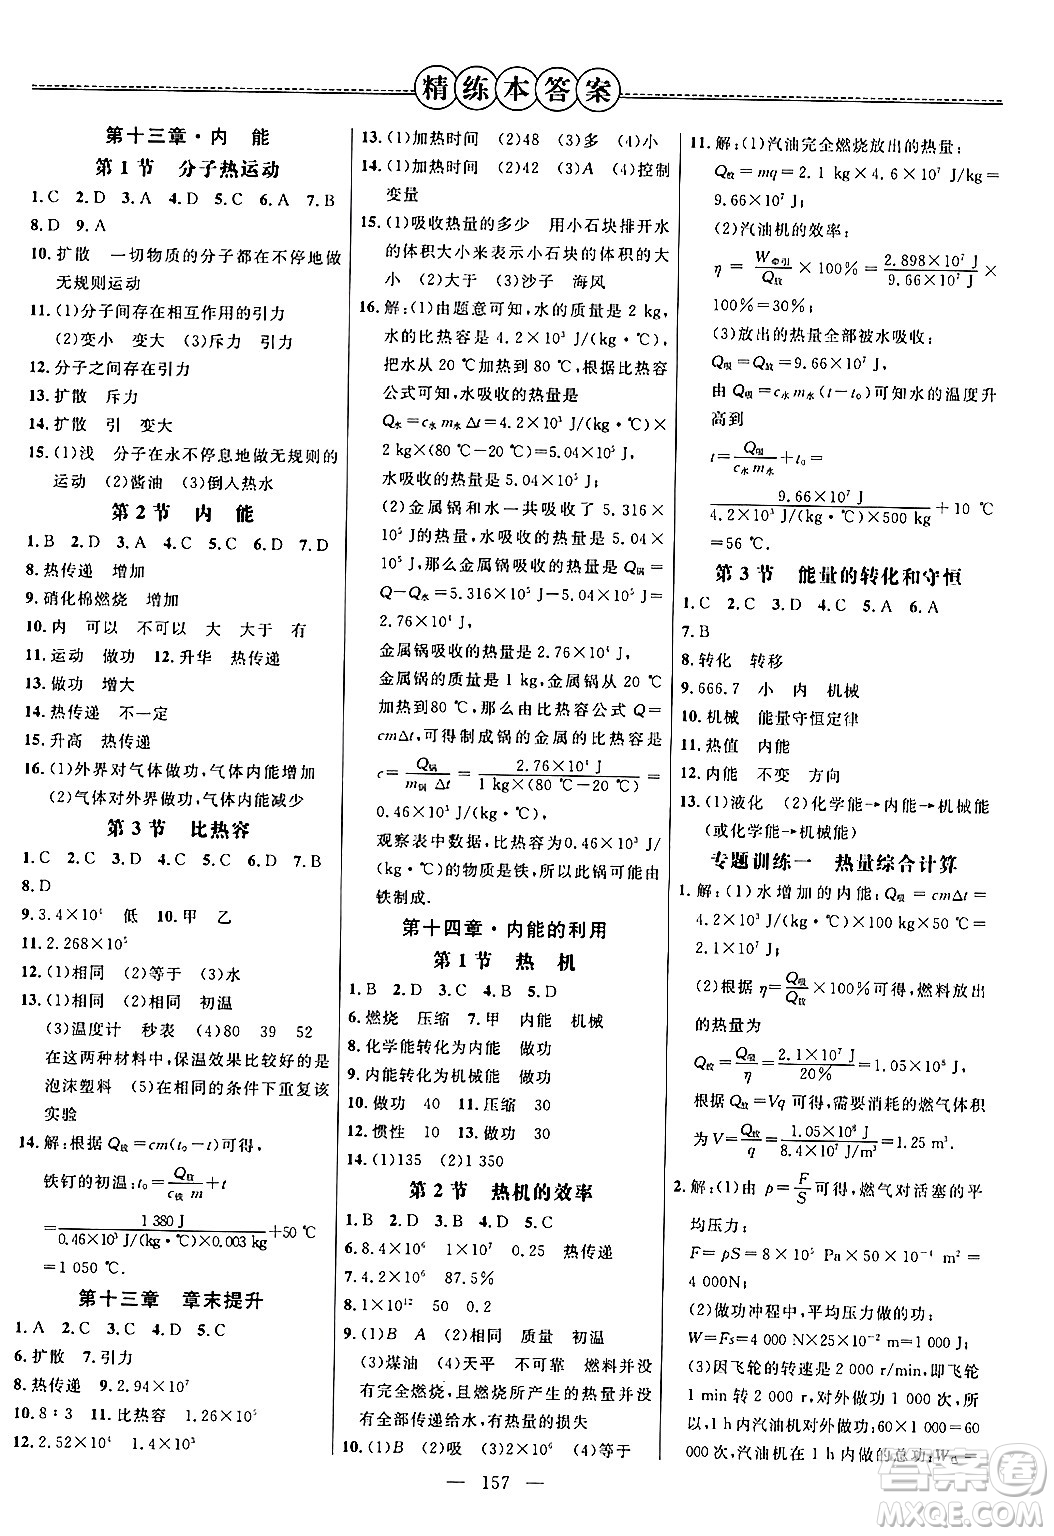 精练本答案
第十三章·内 能
第1节 分子热运动
1. C 2. C 3. A 4. D 5. C 6. A 7. B
8. D 9. A
10. 扩散 一切物质的分子都在不停地做
无规则运动
11. (1)分子间存在相互作用的引力
(2)变小 变大 (3)斥力 引力
12. 分子之间存在引力
13. 扩散 斥力
14. 扩散 引 变大
15. (1)浅 分子在永不停息地做无规则的
运动 (2)酱油 (3)倒入热水
第2节 内 能
1. B 2. D 3. A 4. C 5. B 6. D 7. D
8. 热传递 增加
9. 硝化棉燃烧 增加
10. 内 可以 不可以 大 大于 有
11. 运动 做功 12. 升华 热传递
13. 做功 增大
14. 热传递 不一定
15. 升高 热传递
16. (1)外界对气体做功,气体内能增加
(2)气体对外界做功,气体内能减少
第3节 比热容
1. C 2. C 3. C 4. D 5. C 6. A 7. B
8. D
9. 3.4×10⁴ 低 10. 甲 乙
11. 2.268×10⁵
12. (1)相同 (2)等于 (3)水
13. (1)相同 (2)相同 初温
(3)温度计 秒表 (4)80 39 52
在这两种材料中,保温效果比较好的是
泡沫塑料 (5)在相同的条件下重复该
实验
14. 解:根据 Q放=cm(t₀−t)可得,
铁钉的初温:t₀=Q放/(c铁 m)+t
=1 380 J/(0.46×10³ J/(kg·℃)×0.003 kg)+50 ℃
=1 050 ℃.
第十三章 章末提升
1. A 2. C 3. C 4. D 5. B
6. 扩散 7. 引力
8. 热传递 9. 2.94×10⁷
10. 8∶3 11. 比热容 1.26×10⁵
12. 2.52×10⁴ 1.4×10³
13. (1)加热时间 (2)48 (3)多 (4)小
14. (1)加热时间 (2)5 (3)A (4)控制
变量
15. (1)吸收热量的多少 用小石块排开水
的体积大小来表示小石块的体积的大
小 (2)大于 (3)沙子 海风
16. 解:(1)由题意可知,水的质量是 2 kg,
水的比热容是 4.2×10³ J/(kg·℃),
把水从 20 ℃加热到 80 ℃,由热量
公式可知,水吸收的热量是
Q水=c水 m水 Δt=4.2×10³ J/(kg·℃)
×2 kg×(80 ℃−20 ℃)=5.04×10⁵ J
水吸收的热量是 5.04×10⁵ J.
(2)金属锅和水一共吸收了 5.316×
10⁵ J 的热量,水吸收的热量是 5.04×
10⁵ J,因此,金属锅吸收的热量是 Q锅=
Q−Q水=5.316×10⁵ J−5.04×10⁵ J=
2.76×10⁴ J
金属锅吸收的热量是 2.76×10⁴ J,
金属锅的质量是 1 kg,金属锅从 20 ℃
加热到 80 ℃,那么由比热容公式 Q=
cmΔt,可得制成锅的金属的比热容是
c=Q锅/(m锅 Δt)=2.76×10⁴ J/(1 kg×(80 ℃−20 ℃))=0.46×
10³ J/(kg·℃)
观察表中数据,比热容为 0.46×10³ J/
(kg·℃)的物质是铁,所以此锅可能由
铁制成.
第十四章·内能的利用
第1节 热 机
1. B 2. D 3. C 4. B 5. D
6. 燃烧 压缩 7. 甲 内能 机械
8. 化学能转化为内能 做功
9. 内能转化为机械能 做功
10. 做功 40 11. 压缩 30
12. 惯性 10 13. 做功 30
14. (1)135 (2)1 350
第2节 热机的效率
1. B 2. B 3. C 4. D 5. C
6. 8.4×10⁶ 1 400 0.25 热传递
7. 4.2×10⁶ 87.5%
8. 1×10¹² 50 0.2
9. (1)B A (2)相同 质量 初温
(3)煤油 (4)天平 不可靠 燃料并没
有完全燃烧,燃烧所产生的热量并没
有全部传递给水,有热量的损失
10. (1)B (2)吸 (3)480 (4)等于
11. 解:(1)汽油完全燃烧放出的热量:
Q放=mq=2.1 kg×4.6×10⁷ J/kg=
9.66×10⁷ J
(2)汽油机的效率:
η=W牵引/Q放×100%=2.898×10⁷ J/9.66×10⁷ J×
100%=30%;
(3)放出的热量全部被水吸收:
Q吸=Q放=9.66×10⁷ J,
由 Q吸=c水m水(t−t₀)可知水的温度升
高到
t=Q吸/(c水 m水)+t₀=
9.66×10⁷ J/(4.2×10³ J/(kg·℃)×500 kg)+10 ℃
=56 ℃.
第3节 能量的转化和守恒
1. C 2. C 3. C 4. C 5. A 6. A
7. B
8. 转化 转移
9. 666.7 小 内 机械
10. 机械 能量守恒定律
11. 热值 内能
12. 内能 不变 方向
13. (1)液化 (2)化学能→内能→机械能
(或化学能→机械能)
专题训练一 热量综合计算
1. 解:(1)水增加的内能:Q吸=cmΔt=
4.2×10³ J/(kg·℃)×100 kg×50 ℃=
2.1×10⁷ J
(2)根据 η=Q吸/Q放×100%可得,燃料放出
的热量为
Q放=Q吸/η=2.1×10⁷ J/20%=1.05×10⁸ J
根据 Q放=Vq 可得,需要消耗的燃气体积
为 V=Q放/q=1.05×10⁸ J/8.4×10⁷ J/m³=1.25 m³.
2. 解:(1)由 p=F/S可得,燃气对活塞的平
均压力:
F=pS=8×10⁵ Pa×50×10⁻⁴ m²=
4 000N;
(2)做功冲程中,平均压力做的功:
W=Fs=4 000 N×25×10⁻² m=1 000 J;
(3)因飞轮的转速是 2 000 r/min,即飞轮
1 min转 2 000 转,对外做功 1 000 次,所
以,1 h汽油机对外做功:60×1 000=60
000次,汽油机在 1 h 内做的总功:W总=
— 157 —
答案圈
MXQE.COM